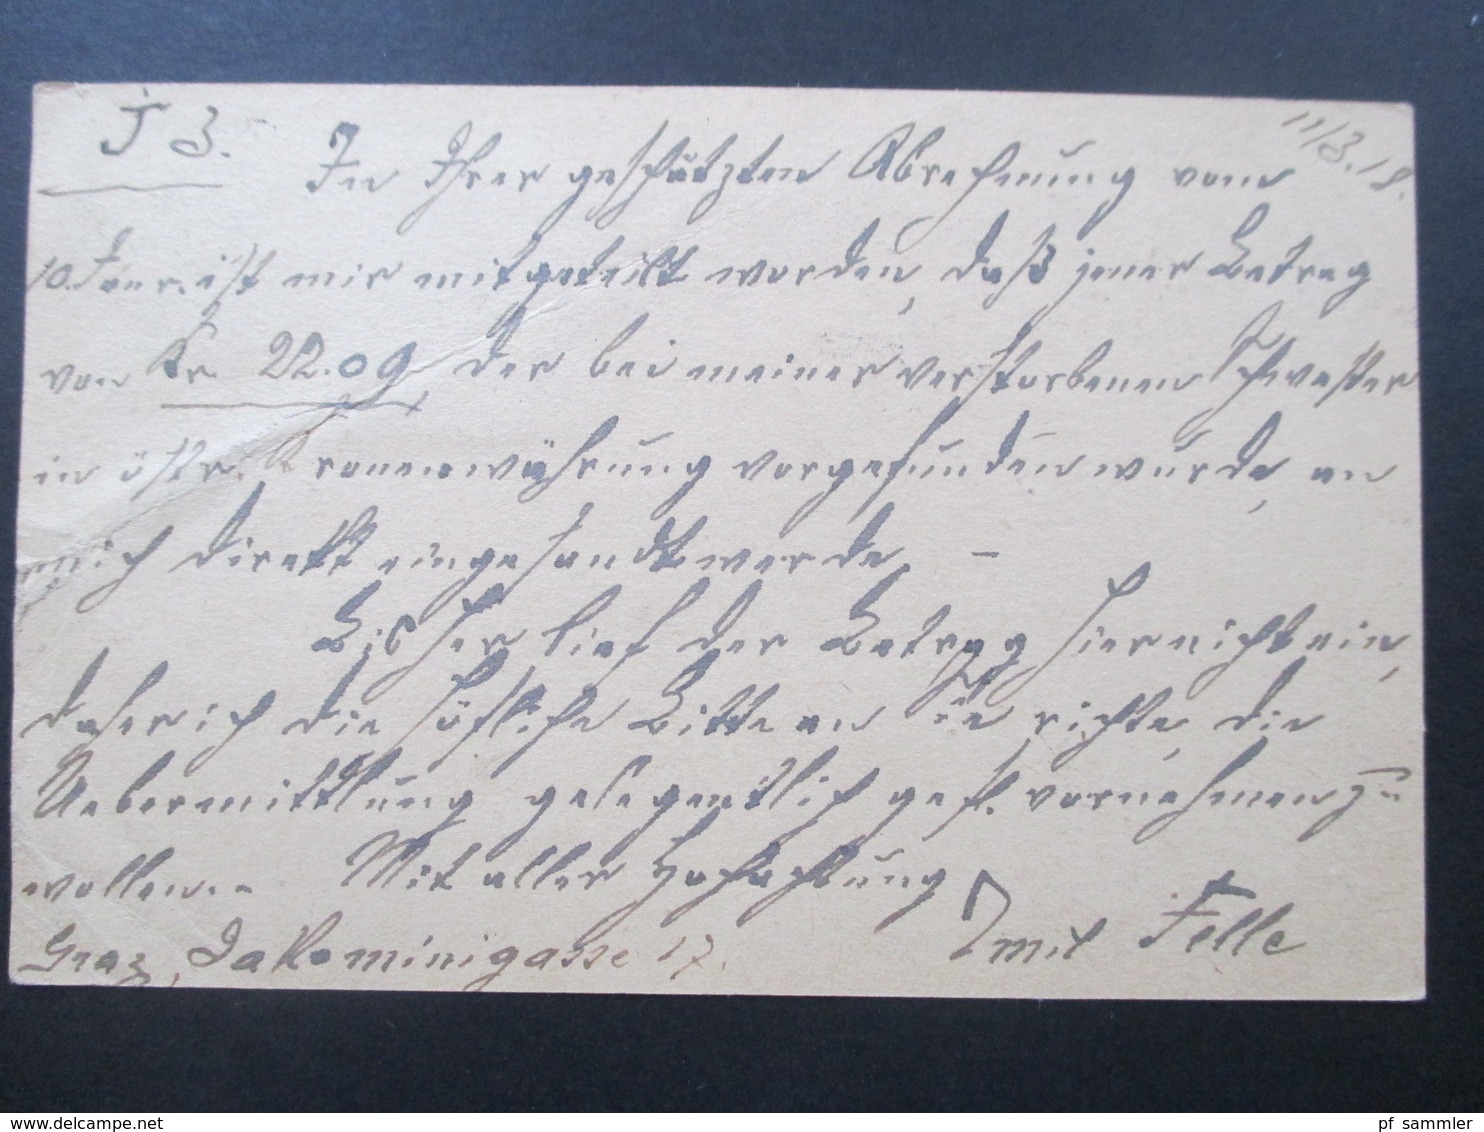 J 3.
11/3.18.
In Ihrer geschätzten Abrechnung vom
10. Jänr. ist mir mitgeteilt worden, daß jener Betrag
von Kr 22.09, der bei meiner verstorbenen Schwester
in östr. Kronenwährung vorgefunden wurde, an
mich direkt eingesandt werde. –
Bisher lief der Betrag hier nicht ein,
daher ich die höfliche Bitte an Sie richte, die
Uebermittlung gelegentlich gefl. vornehmen zu
wollen. –
Mit aller Hochachtung
Graz, Jakominigasse 17.
Emil Felle
pf sammler
www.delcampe.net